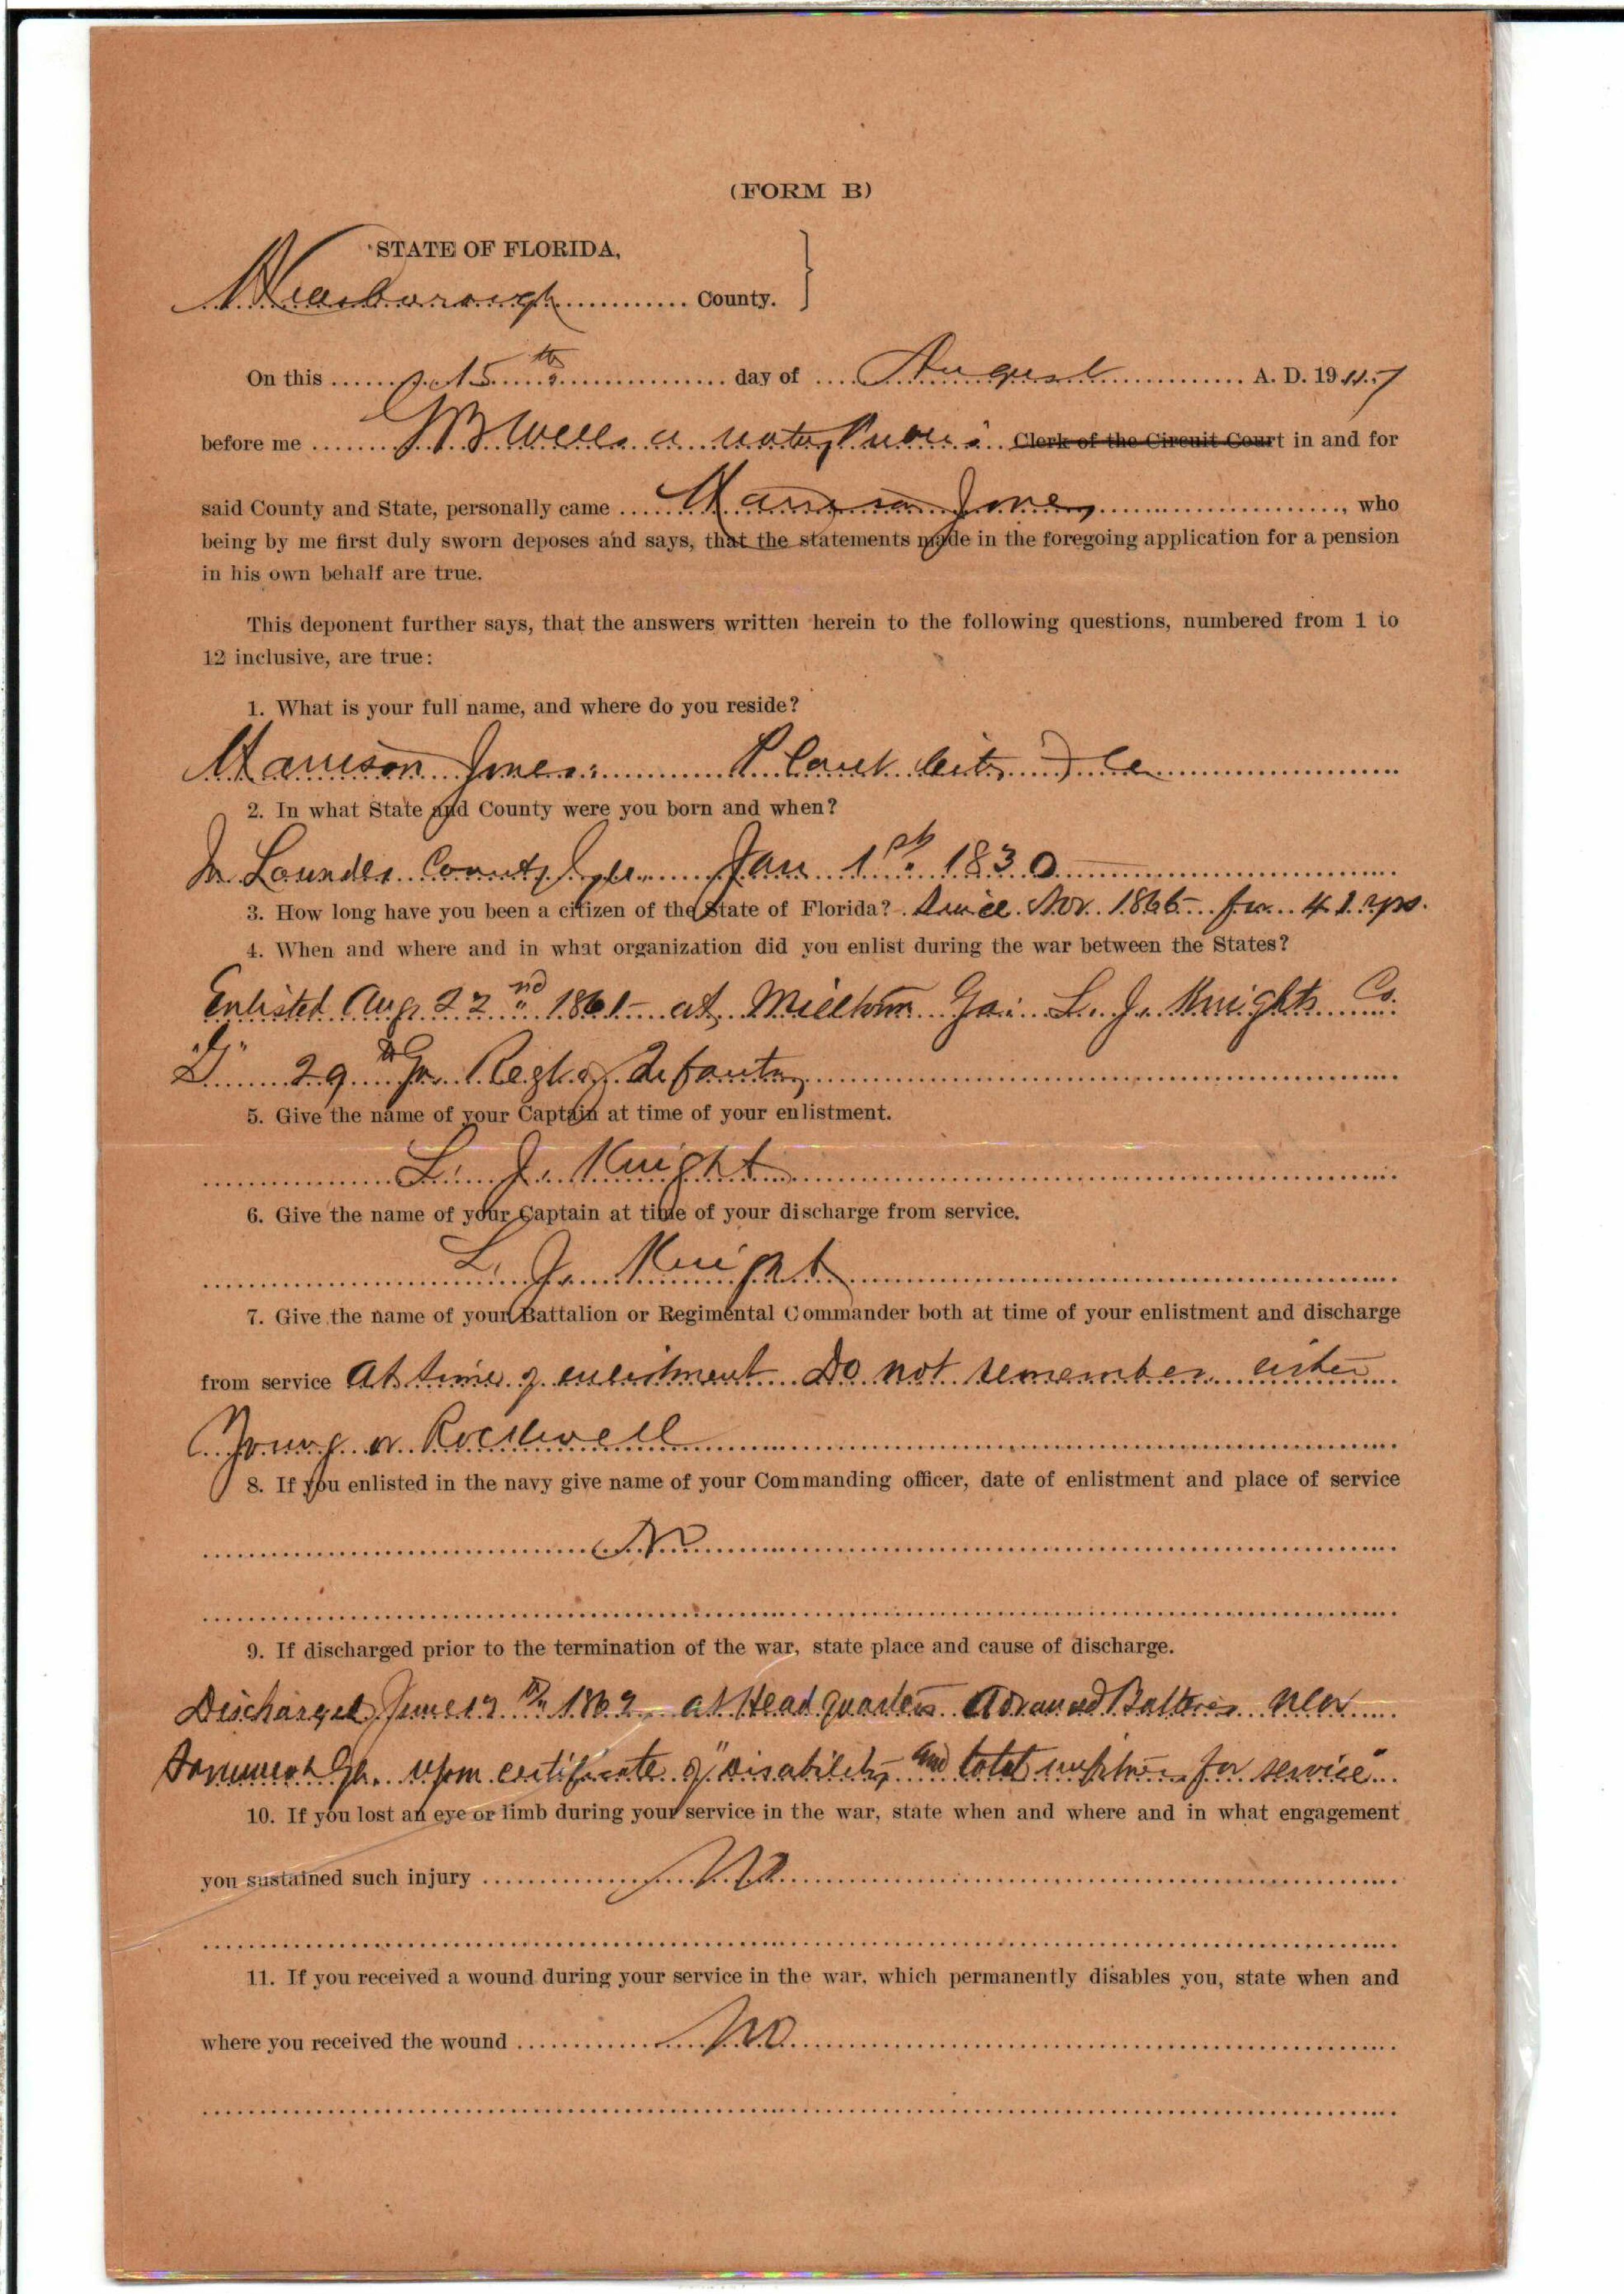 (FORM B)
STATE OF FLORIDA,
Hillsborough County.
On this 15th day of August A. D. 19
before me G B Wells a notary Public Clerk of the Circuit Court in and for
said County and State, personally came Harrison Jones, who
being by me first duly sworn deposes and says, that the statements made in the foregoing application for a pension
in his own behalf are true.
This deponent further says, that the answers written herein to the following questions, numbered from 1 to
12 inclusive, are true:
1. What is your full name, and where do you reside?
Harrison Jones. Plant City Fla
2. In what State and County were you born and when?
In Lowndes County Ga. Jan 1st. 1830
3. How long have you been a citizen of the State of Florida? Since Nov. 1866 for 41 yrs.
4. When and where and in what organization did you enlist during the war between the States?
Enlisted Aug. 22nd 1861 at Milltown Ga. L. J. Knights Co.
29th Ga. Regt of Infantry
5. Give the name of your Captain at time of your enlistment.
L. J. Knight
6. Give the name of your Captain at time of your discharge from service.
L. J. Knight
7. Give the name of your Battalion or Regimental Commander both at time of your enlistment and discharge
from service At time of enlistment Do not remember either
Young or Rockwell
8. If you enlisted in the navy give name of your Commanding officer, date of enlistment and place of service
No
9. If discharged prior to the termination of the war, state place and cause of discharge.
Discharged June 1862 at Head quarters Advanced Batteries near
Savannah Ga. upon certificate of "Disability and total for service"
10. If you lost an eye or limb during your service in the war, state when and where and in what engagement
you sustained such injury No
11. If you received a wound during your service in the war, which permanently disables you, state when and
where you received the wound No